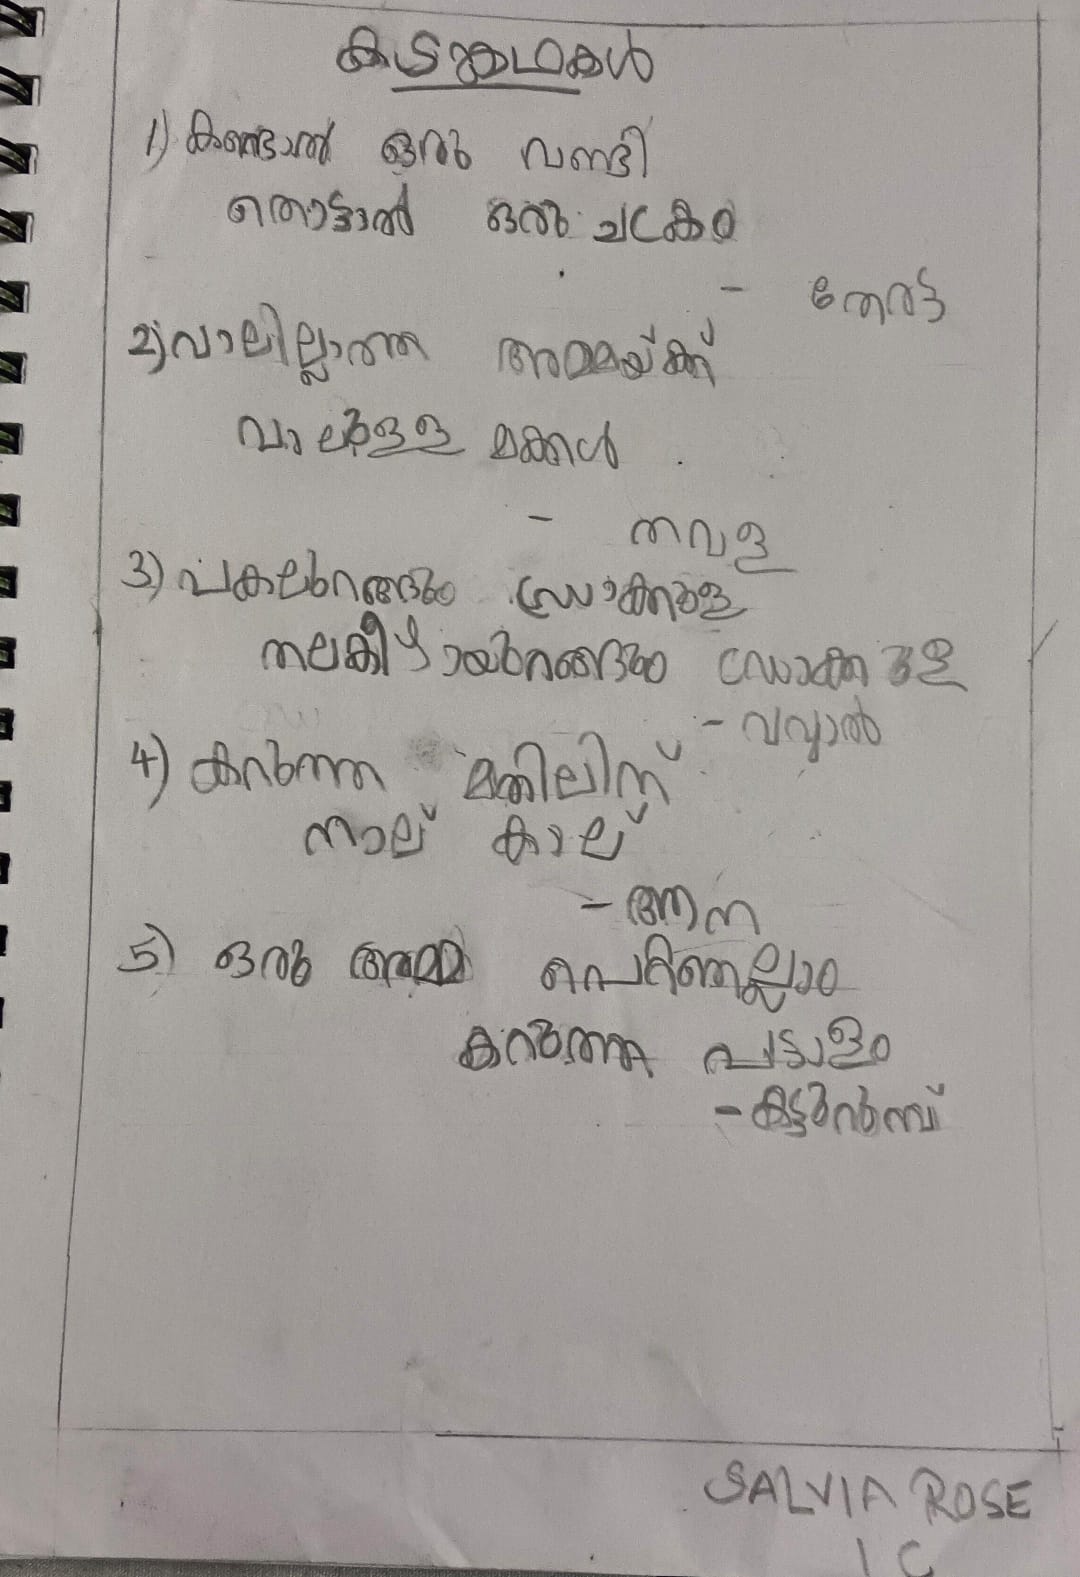 കടങ്കഥകൾ
1) കണ്ടാൽ ഒരു വണ്ടി
തൊട്ടാൽ ഒരു ചക്രം
- തേരട്ട
2) വാലില്ലാത്ത അമ്മയ്ക്ക്
വാലുള്ള മക്കൾ
- തവള
3) പകലുറങ്ങും
തലകീഴായുറങ്ങും
- വവ്വാൽ
4) കറുത്ത മതിലിന്
നാല് കാല്
- ആന
5) ഒരു അമ്മ പെറ്റതെല്ലാം
കറുത്ത പട്ടാളം
- കട്ടുറുമ്പ്
SALVIA ROSE
I C